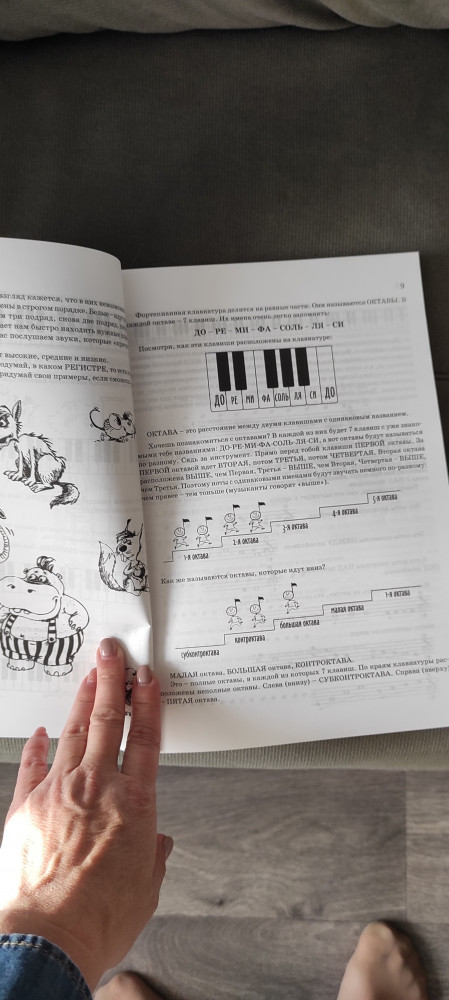 взгляд кажется, что в них
ены в строгом порядке. Белые –
м три подряд, снова две подряд,
ает нам быстро находить нужные
ас послушаем звуки, которые
т высокие, средние и низкие.
подумай, в каком РЕГИСТРЕ, то есть
ридумай свои примеры, если сможешь.
9
Фортепианная клавиатура делится на равные части. Они называются ОКТАВЫ. В
каждой октаве – 7 клавиш. Их имена очень легко запомнить:
ДО – РЕ – МИ – ФА – СОЛЬ – ЛЯ – СИ
Посмотри, как эти клавиши расположены на клавиатуре:
ДО РЕ МИ ФА СОЛЬ ЛЯ СИ ДО
ОКТАВА – это расстояние между двумя клавишами с одинаковым названием.
Хочешь познакомиться с октавами? В каждой из них будет 7 клавиш с уже знако-
мыми тебе названиями: ДО-РЕ-МИ-ФА-СОЛЬ-ЛЯ-СИ, а вот октавы будут называться
по-разному. Сядь за инструмент. Прямо перед тобой клавиши ПЕРВОЙ октавы. За
ПЕРВОЙ октавой идет ВТОРАЯ, потом ТРЕТЬЯ, потом ЧЕТВЕРТАЯ. Вторая октава
расположена ВЫШЕ, чем Первая, Третья – ВЫШЕ, чем Вторая, Четвертая – ВЫШЕ,
чем Третья. Поэтому ноты с одинаковыми именами будут звучать немного по-разному:
чем правее – тем тоньше (музыканты говорят «выше»).
1-я октава 2-я октава 3-я октава 4-я октава 5-я октава
Как же называются октавы, которые идут вниз?
субконтроктава контроктава большая октава малая октава 1-я октава
МАЛАЯ октава, БОЛЬШАЯ октава, КОНТРОКТАВА.
Это – полные октавы, в каждой из которых 7 клавиш. По краям клавиатуры рас-
положены неполные октавы. Слева (внизу) – СУБКОНТРОКТАВА. Справа (вверху)
– ПЯТАЯ октава.